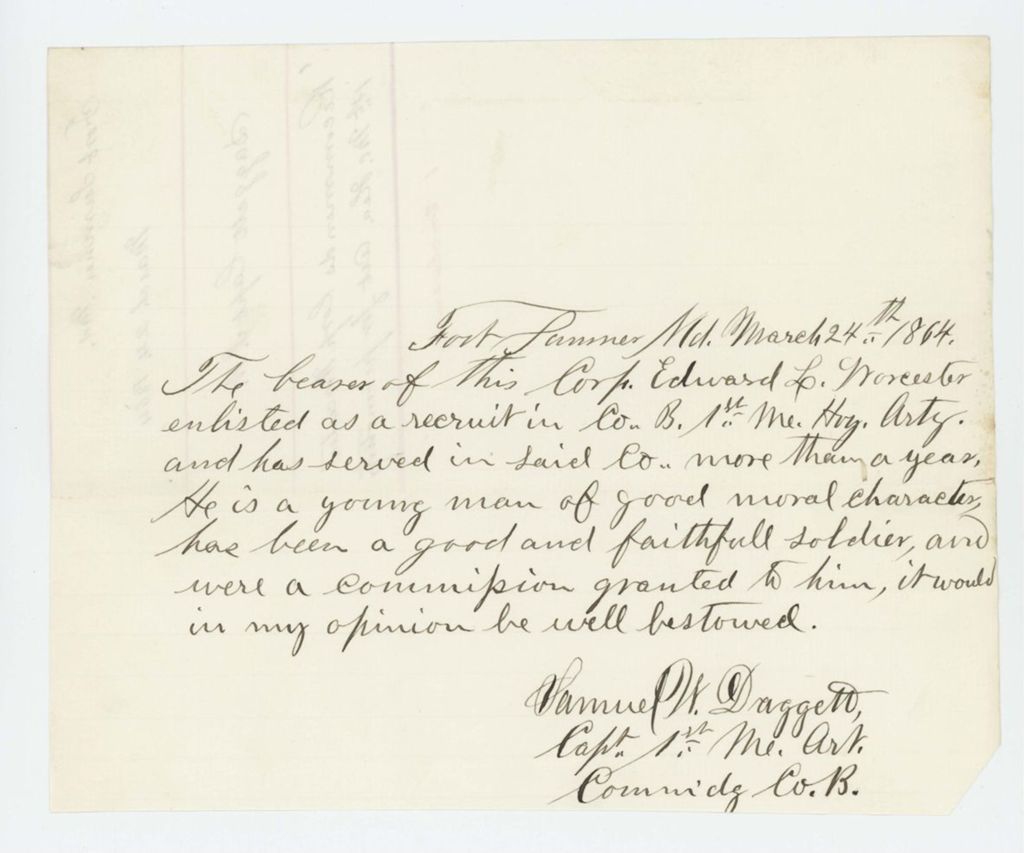 Fort Sumner Md. March 24th 1864.
The bearer of this Corp. Edward L. Worcester
enlisted as a recruit in Co. B. 1st Me. Hvy. Arty.
and has served in said Co. more than a year,
He is a young man of good moral character,
has been a good and faithfull soldier, and
were a commission granted to him, it would
in my opinion be well bestowed.
Samuel W. Daggett,
Capt. 1st Me. Art.
Commidg Co. B.